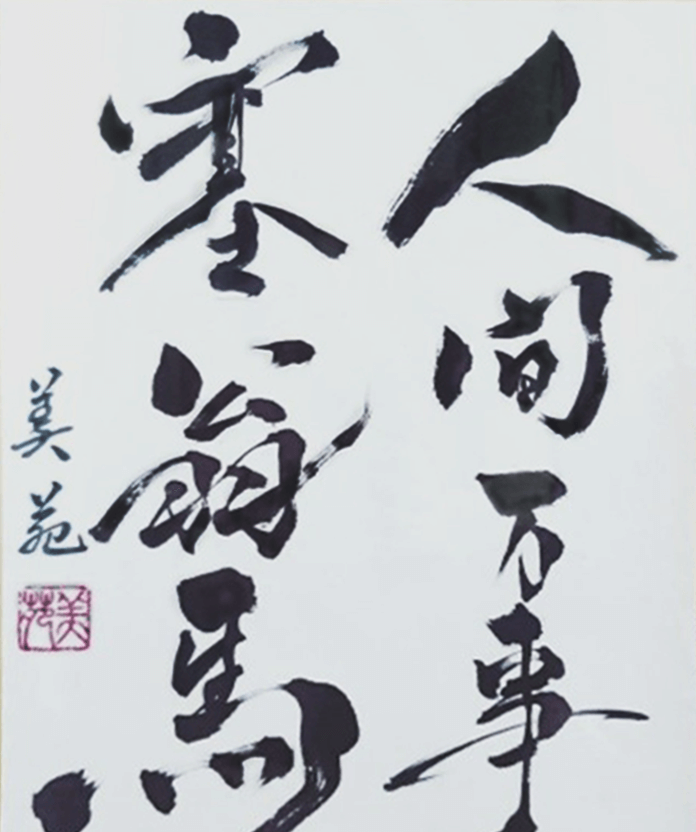 人間万事
塞翁馬
美苑
美苑